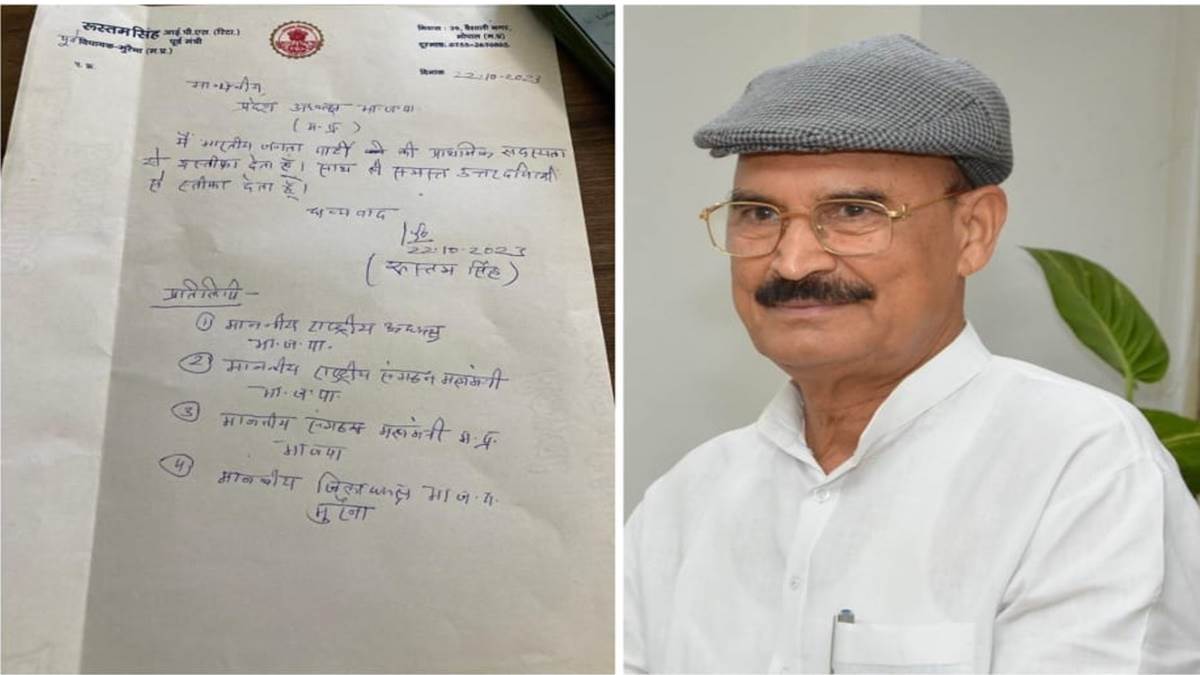 रूस्तमसिंह आई.पी.एस. (रिटा.)
पूर्व मंत्री
पूर्व विधायक-मुरैना (म.प्र.)
निवास : 29, वैशाली नगर,
भोपाल (म.प्र)
दूरभाष: 0755-2670005.
प. क्र.
दिनांक 22-10-2023
माननीय,
प्रदेश अध्यक्ष भा.ज.पा.
(म.प्र.)
मैं भारतीय जनता पार्टी की प्राथमिक सदस्यता
से इस्तीफा देता हूँ। साथ ही समस्त उत्तरदायित्वों
से स्तीफा देता हूँ।
धन्यवाद
22.10.2023
(रूस्तम सिंह)
प्रतिलिपी -
① माननीय राष्ट्रीय अध्यक्ष
भा.ज.पा.
② माननीय राष्ट्रीय संगठन महामंत्री
भा.ज.पा.
③ माननीय संगठन महामंत्री म.प्र.
भाजपा
④ माननीय जिलाध्यक्ष भा.ज.पा.
मुरैना